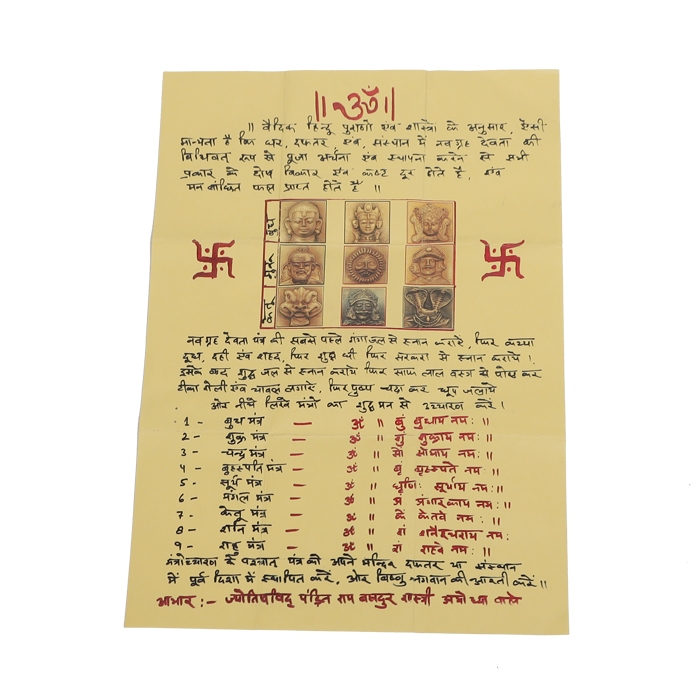 || ॐ ||
|| वैदिक हिन्दु पुराणो एंव शास्त्रो के अनुसार, ऐसी
मान्यता है कि घर, दफतर, एंव, संस्थान में नवग्रह देवता की
विधिवत् रूप से पूजा अर्चना एंव स्थापना करने से सभी
प्रकार के दोष विकार एंव कष्ट दूर होते है, एंव
मन वांछित फल प्राप्त होते है ||
बुध
गुरू
केतु
नवग्रह देवता यंत्र को सबसे पहले गंगाजल से स्नान कराऐ, फिर कच्चा
दूध, दही एंव शहद, फिर शुद्ध घी फिर सक्करा से स्नान कराये |
इसके बाद शुद्ध जल से स्नान कराये फिर साफ लाल वस्त्र से पोछ कर
टीका रोली एंव चावल लगाऐ, फिर पुष्प चढ़ा कर धूप जलाये
ओर नीचे लिखे मंत्रो का शुद्ध मन से उच्चारण करें |
1 - बुध मंत्र — ॐ || बुं बुधाय नमः ||
2 - शुक्र मंत्र — ॐ || शुं शुक्राय नमः ||
3 - चन्द्र मंत्र — ॐ || सों सोमाय नमः ||
4 - बृहस्पति मंत्र — ॐ || बृं बृहस्पते नमः ||
5 - सूर्य मंत्र — ॐ || घृणिः सूर्याय नमः ||
6 - मंगल मंत्र — ॐ || अं अंगारकाय नमः ||
7 - केतू मंत्र — ॐ || कें केतवे नमः ||
8 - शनि मंत्र — ॐ || शं शनैश्चराय नमः
9 - राहु मंत्र — ॐ || रां राहवे नमः ||
मंत्रोच्चारण के पश्चात यंत्र को अपने मन्दिर दफतर या संस्थान
में पूर्व दिशा में स्थापित करें, ओर विष्णु भगवान की आरती करें ||
आभार :- ज्योतिषविद् पंड़ित राम बहादुर शास्त्री अयोध्या वाले